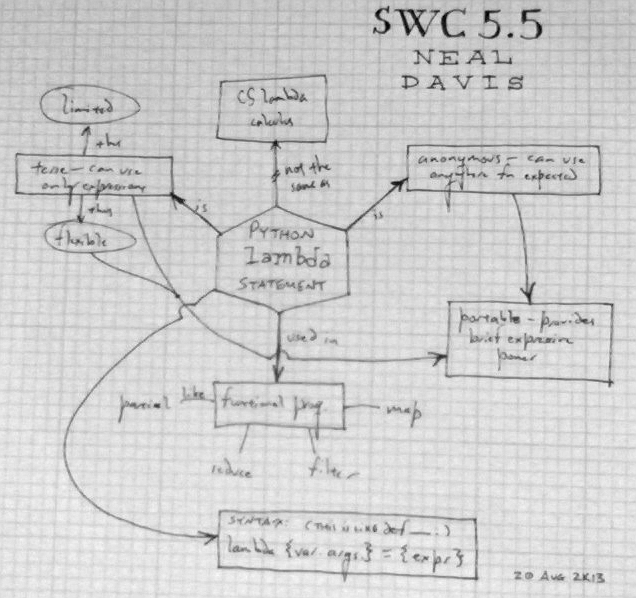 SWC 5.5
NEAL
DAVIS
limited
thus
CS lambda
calculus
terse - can use
only expressions
not the
same as
anonymous - can use
anywhere fn expected
thus
flexible
is
is
PYTHON
lambda
STATEMENT
portable - provides
brief expressive
power
used in
partial
like
functional prog.
map
reduce
filter
SYNTAX: (THIS IS LIKE def __:)
lambda {var. args.} = {expr}
20 AUG 2K13